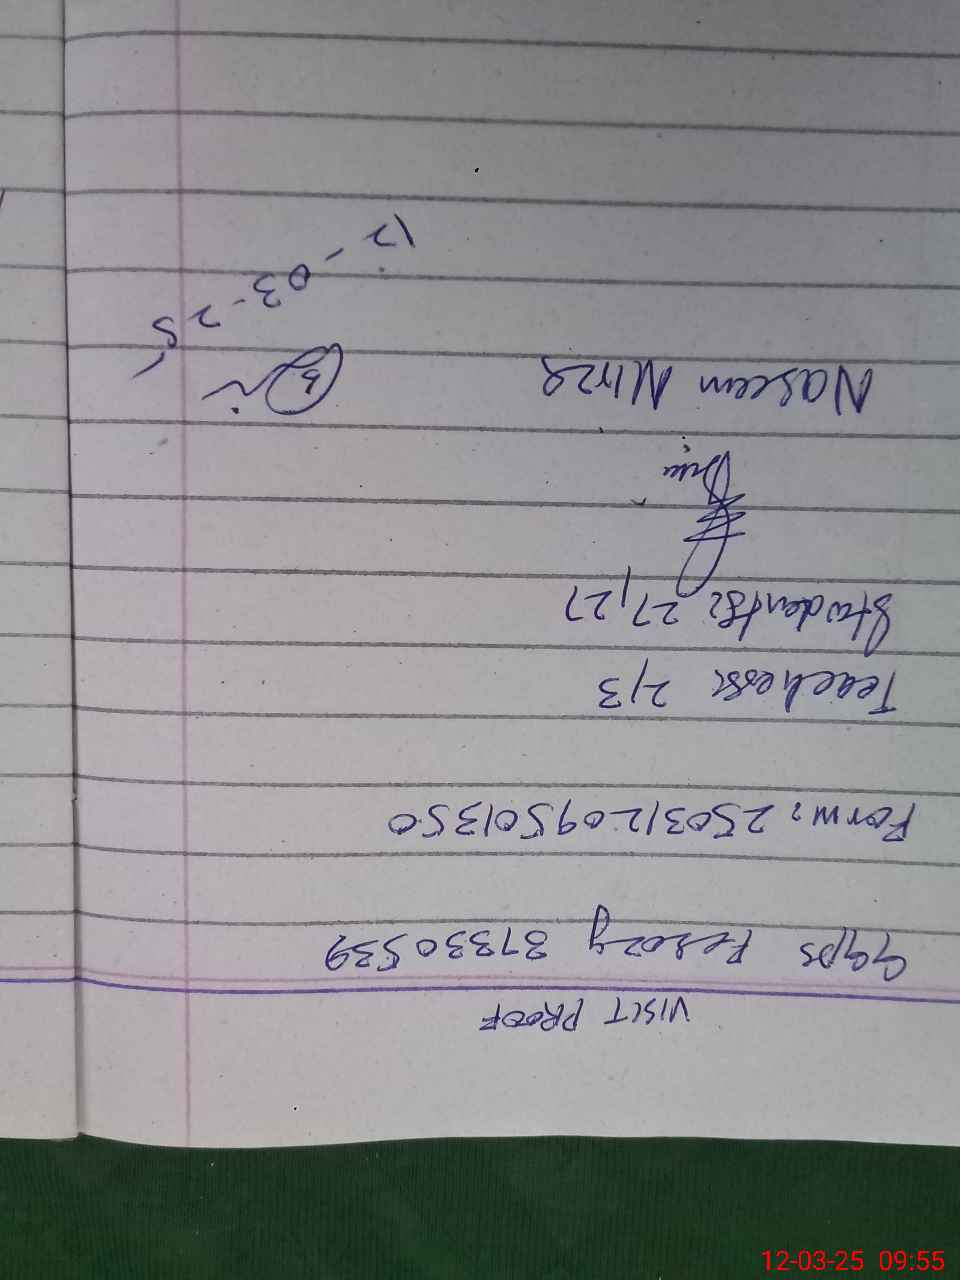 VISIT PROOF
GGPS Ferozy 37330539
Form: 250312095501350
Teachers: 2,3
Students: 27,27
Naseem Mirza
12-03-25
12-03-25 09:55